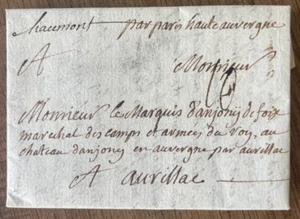 chaumont par paris haute auvergne
A Monsieur
Monsieur le Marquis d'anjony de foix
marechal des camps et armees du Roy, au
chateau d'anjony en auvergne par aurillac
A aurillac